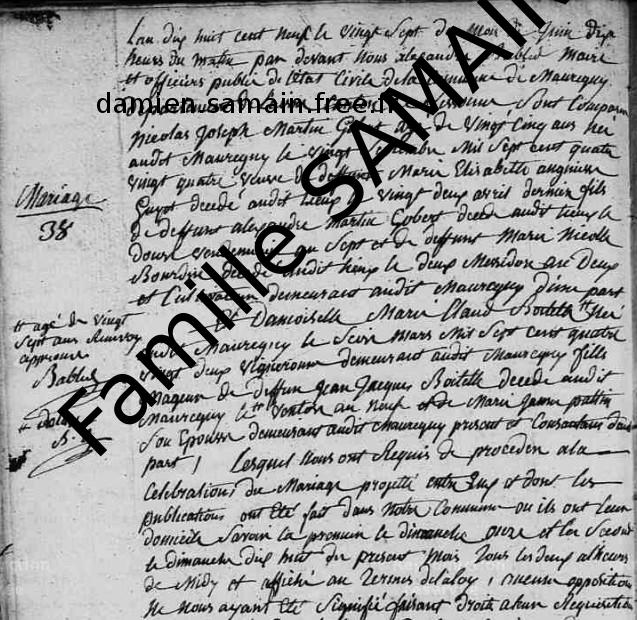 L'an dix huit cent neuf le vingt Sept du Mois de Juin dix
heures du matin par devant Nous alexandre Bablet Maire
et officiers public de l'état Civile de la Commune de Mauregny
damien.samain.free.fr
Département de Sont Comparu
Nicolas Joseph Martin Gobert agé de Vingt Cinq ans Né
audit Mauregny le Vingt Septembre Mil Sept cent quatre
Vingt quatre Veuve de deffunte Marie Elisabette
Guyot decede audit lieux le Vingt deux avril dernier fils
de deffunt alexandre Martin Gobert decede audit lieux le
Mariage
38
Douze Vendemiaire an Sept et de deffunte Marie Nicolle
Bourdin decede audit lieux le deux Messidor an Deux
et Cultivateur demeurant audit Mauregny d'une part
Et Damoiselle Marie Claud Boitelle Née
audit Mauregny le Seize Mars Mil Sept cent quatre
Vingt deux Vigneronne demeurant audit Mauregny fille
Mageur de deffun Jean Jacques Boitelle decede audit
Mauregny le Ventose an Neuf et de Marie Jeanne
Son Epouse demeurant audit Mauregny present et Consentant dautre
part / Lesquel Nous ont Requis de proceder a la
agé de Vingt
Sept ans
approuvé
Bablet
B.
Celebration du Mariage projetté entre Eux et dont les
publications ont Eté fait dans Notre Commune ou ils ont leur
domicile Savoir la premiere le dimanche onze et la Second
le dimanche dix huit du present Mois Tous les deux a l'heure
de Midy et affiché au Termes de la loy, aucune opposition
Ne Nous ayant Eté Signifié faisant droit a leur Requisition
Famille SAMAIN